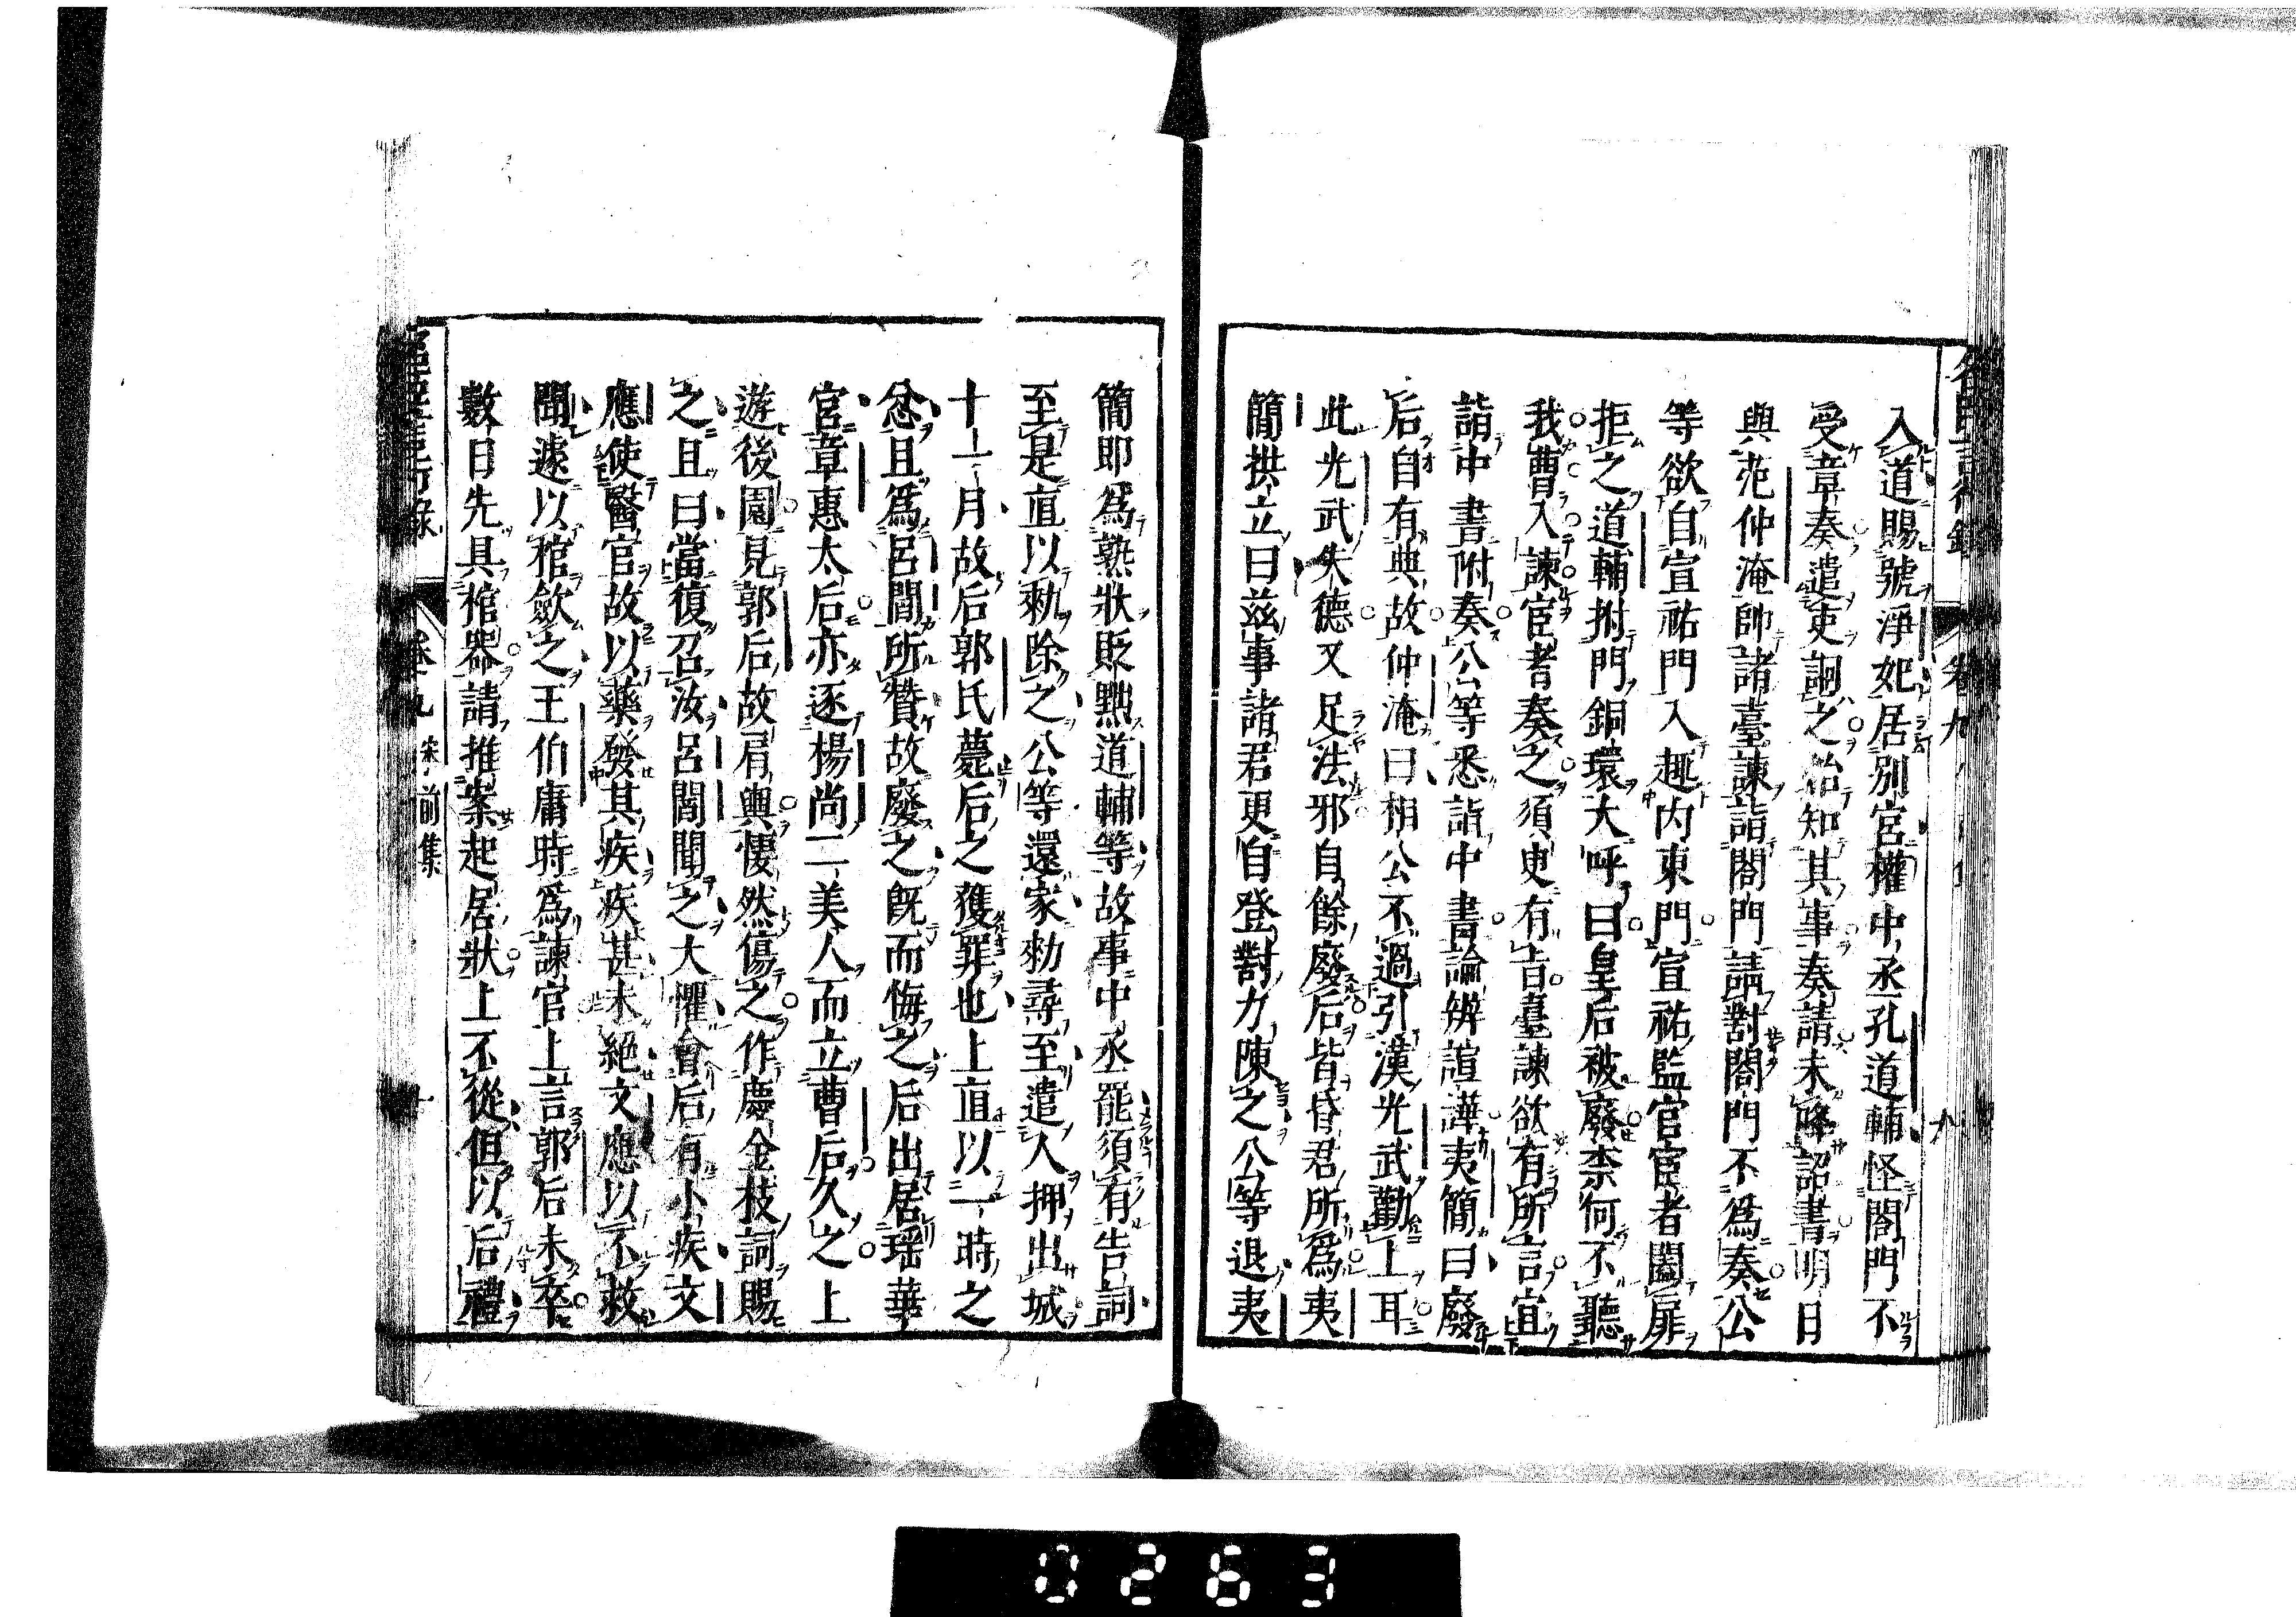 入道賜號淨妃居別宮權中丞孔道輔怪閤門不
受章奏遣吏詗之始知其事奏請未降詔書明日
與范仲淹帥諸臺諫詣閤門請對閤門不爲奏公
等欲自宣祐門入趣内東門宣祐監官宦者闔扉
拒之道輔拊門銅環大呼曰皇后被廢柰何不聽
我曹入諫宦者奏之須臾有旨臺諫欲有所言宜
詣中書附奏公等悉詣中書論辨諠譁夷簡曰廢
后自有典故仲淹曰相公不過引漢光武勸上耳
此光武失德又足法邪自餘廢后皆昏君所爲夷
簡拱立曰兹事諸君更自登對力陳之公等退夷
簡即爲熟狀貶黜道輔等故事中丞罷須有告詞
至是直以勑除之公等還家勑尋至遣人押出城
十一月故后郭氏薨后之獲罪也上直以一時之
忿且爲呂閻所贊故廢之既而悔之后出居瑶華
宮章惠太后亦逐楊尚二美人而立曹后久之上
遊後園見郭后故肩輿悽然傷之作慶金枝詞賜
之且曰當復召汝呂閻聞之大懼會后有小疾文
應使醫官故以藥發其疾疾甚未絶文應以不救
聞遽以棺斂之王伯庸時爲諫官上言郭后未卒
數日先具棺器請推案起居狀上不從但以后禮
卷九 宋前集
0263